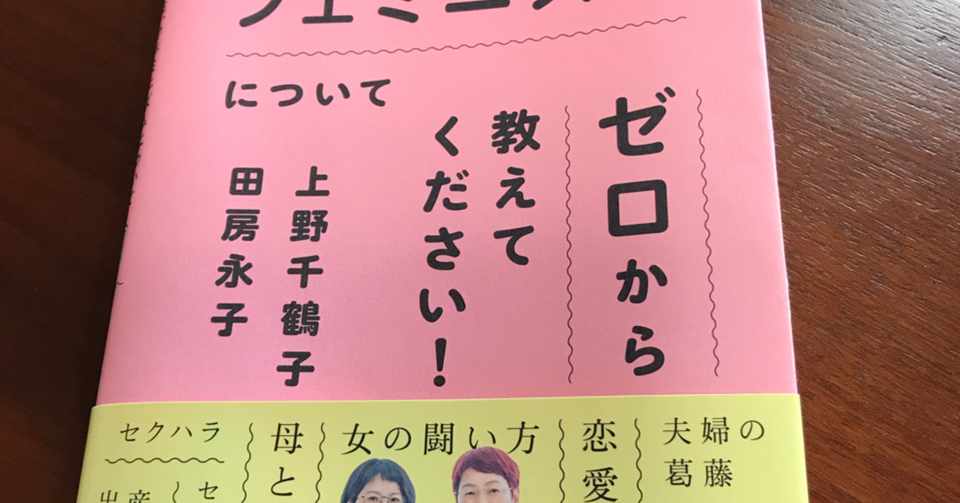 について
ゼロから
教えて
ください!
上野千鶴子
田房永子
夫婦の
葛藤
恋愛
女の闘い方
母と
セクハラ
セ
出産